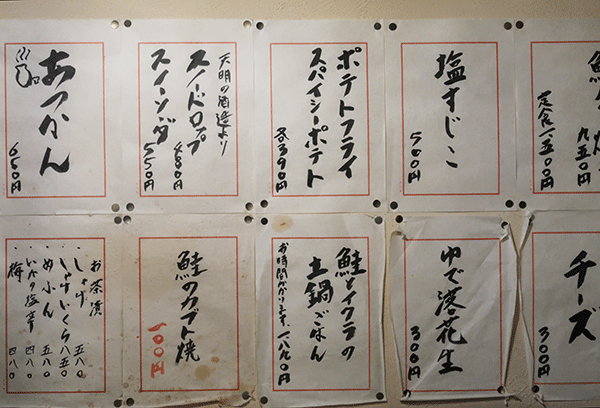 あつかん
650円
天明の酒造より
スノードロップ
400円
スイーンダ
550円
ポテトフライ
スパイシーポテト
各390円
塩すじこ
500円
950円
定食一五〇〇円
お茶漬
・しゃけ 五八〇
・しゃけいくら 八五〇
・めふん 五八〇
・いかの塩辛 四八〇
・梅 四八〇
鮭のカブト焼
100円
鮭とイクラの
土鍋ごはん
お時間かかります、一八九〇円
ゆで落花生
300円
チーズ
300円